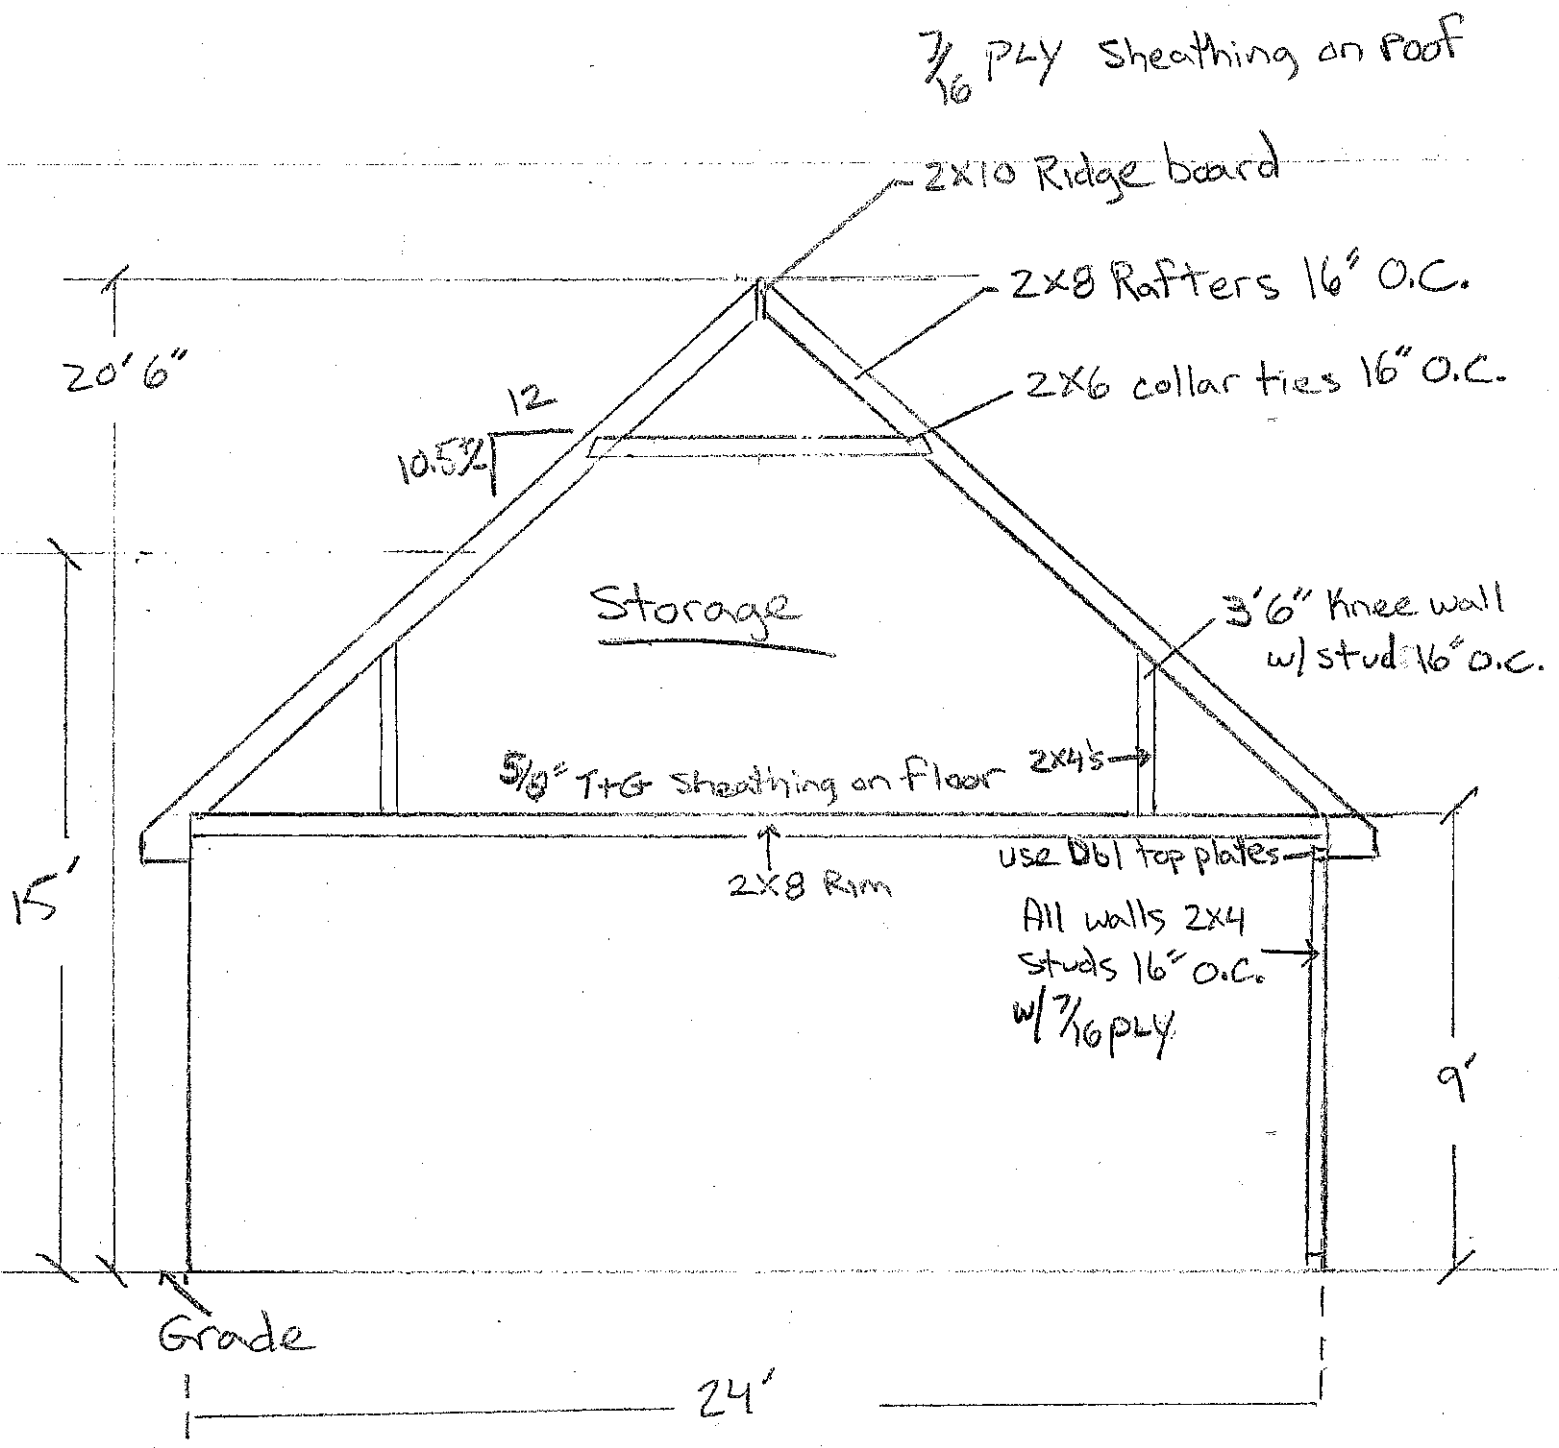 7/16 PLY Sheathing on Roof
2x10 Ridge board
2x8 Rafters 16" O.C.
20'6"
2x6 collar ties 16" O.C.
12
10.5
Storage
3'6" Knee wall
w/ stud 16" O.C.
5/8" T+G Sheathing on floor
2x4's
use Dbl top plates
2x8 Rim
15'
All walls 2x4
studs 16" O.C.
w/ 7/16 PLY
9'
Grade
24'